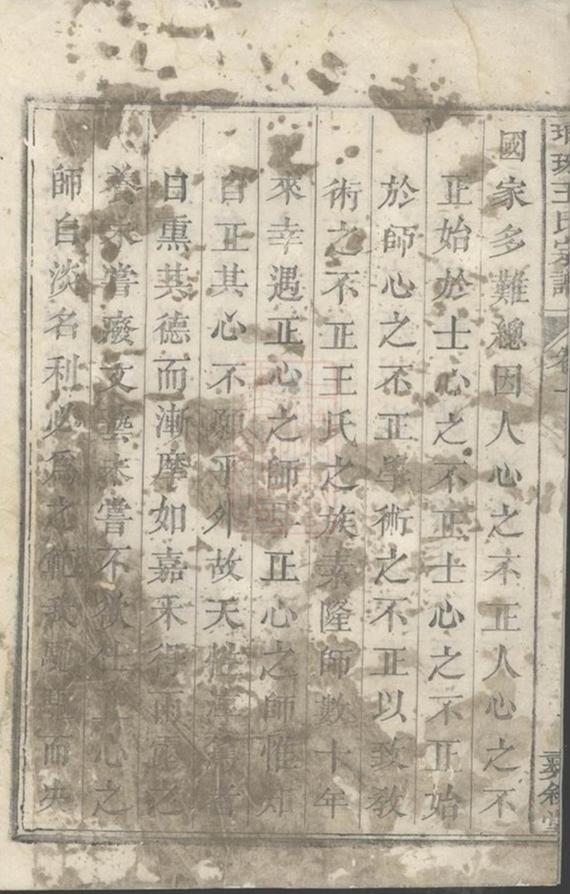 琅琊王氏宗譜 卷一
國家多難總因人心之不正人心之不
正始於士心之不正士心之不正始
於師心之不正學術之不正以致教
術之不正王氏之族素隆師數十年
來幸遇正心之師耳正心之師惟知
自正其心不願乎外故天性
日熏其德而漸摩如嘉禾得雨露之
養未嘗廢文藝未嘗不 心之
師自淡名利必為之範 而